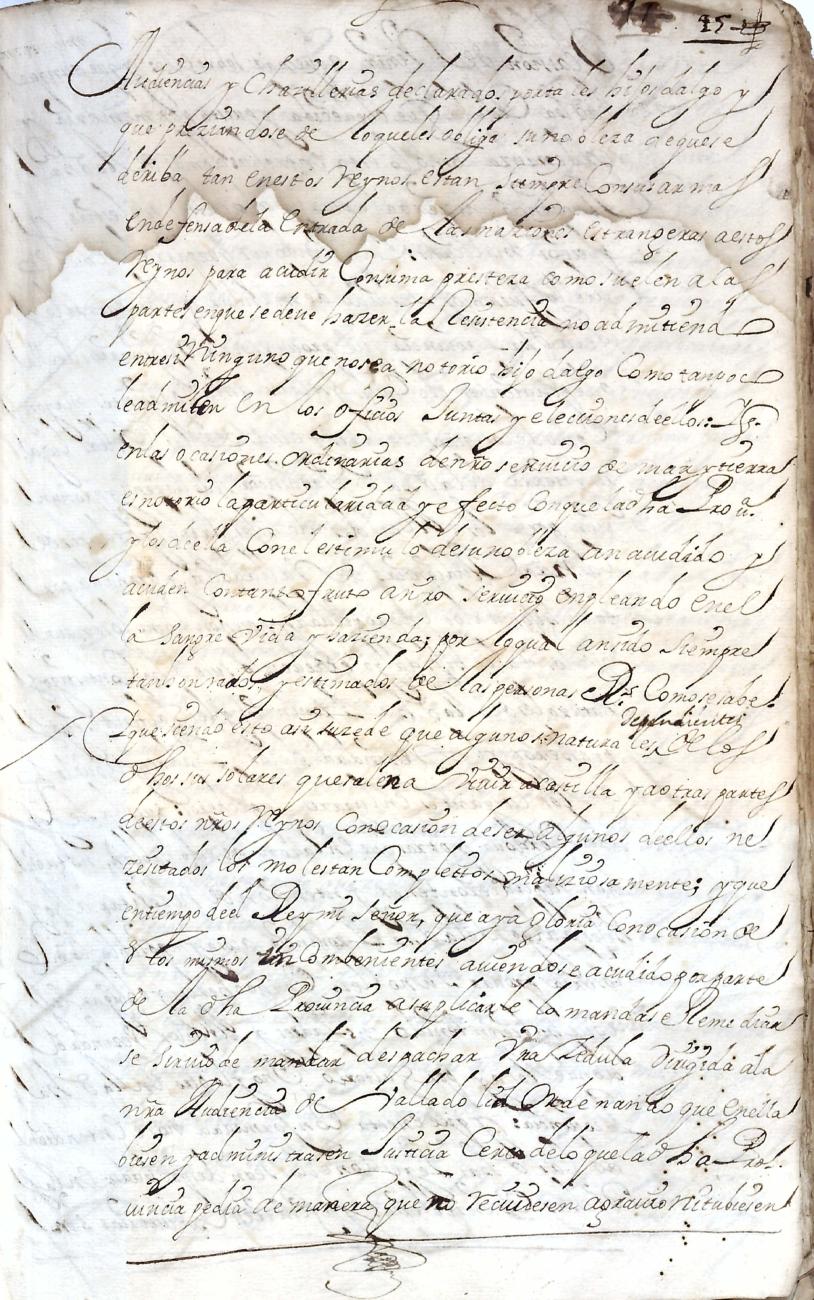 25
Audiencias y Chançillerias declarado. por tales hijos dalgo y
que preziandose de loqueles obliga su nobleza aequese
deriba tan enestos Reynos estan siempre Consus armas
endefensa dela entrada de las naziones estrangeras aestos
Reynos para acudir Consuma presteza como suelen alas
partes enque sedeve hazer la Resistencia no admitiendo
entresi Ninguno que nosea notorio hijo dalgo Como tanpoco
leadmiten en los ofiçios Juntas y eleciones deellos: Y
enlas ocasiones ordinarias denro seruicio de mar y tierra
es notorio la particularidad y efecto conque la dha Proua.
y los deella Con el estimulo desu nobleza an acudido y
acuden Contanto fruto anro seruicio enpleando enel
la sangre vida y hazienda; por loqual ansido siempre
tan honrados, y estimados de las personas Rs. Comosesabe.
dependientes
Yque siendo esto asi suzede que algunos naturales de los
dhos sus solares quesalen a viuir acastilla y aotras partes
deestos nros Reynos, Conocasion deser algunos deellos ne-
zesitados los molestan Compleitos maliziosamente; y que
entiempo deel Rey mi señor, que aya gloria Conocasion de
estos mismos inConbenientes auiendose acudido por parte
de la dha Prouincia asuplicarle lo mandase Remediar
se siruio de mandar despachar Vna Zedula dirigida ala
nra Audiencia de Vallado lid Ordenando que enella
biesen y administrasen Justicia Cerca delo que la dha Pro-
uincia pedia de manera que no reciuiesen agrauio ni tubiesen